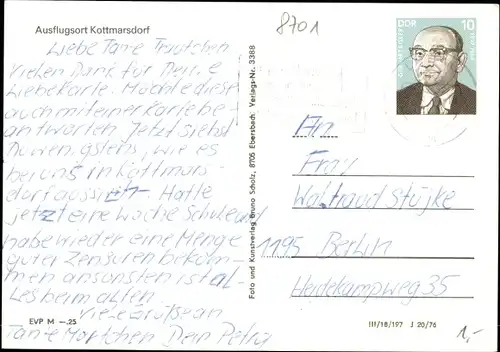 Ausflugsort Kottmarsdorf
8701
Liebe Tante Trautchen
Vielen Dank für Deine
liebe Karte. Möchte diese
auch mit einer Karte be-
antworten. Jetzt siehst
Du wenigstens, wie es
bei uns in Kottmars-
dorf aussieht. Hatte
jetzt eine Woche Schule und
habe wieder eine Menge
guter Zensuren bekom-
men ansonsten ist al-
les beim alten
Viele Grüße an
Tante Martchen Dein Petra
EVP M –.25
Foto und Kunstverlag Benno Scholz, 8705 Ebersbach, Verlags-Nr. 3388
DDR 10
An
Frau
Waltraud Stujke
1195 Berlin
Heidekampweg 35
III/18/197 J 20/76
1,-